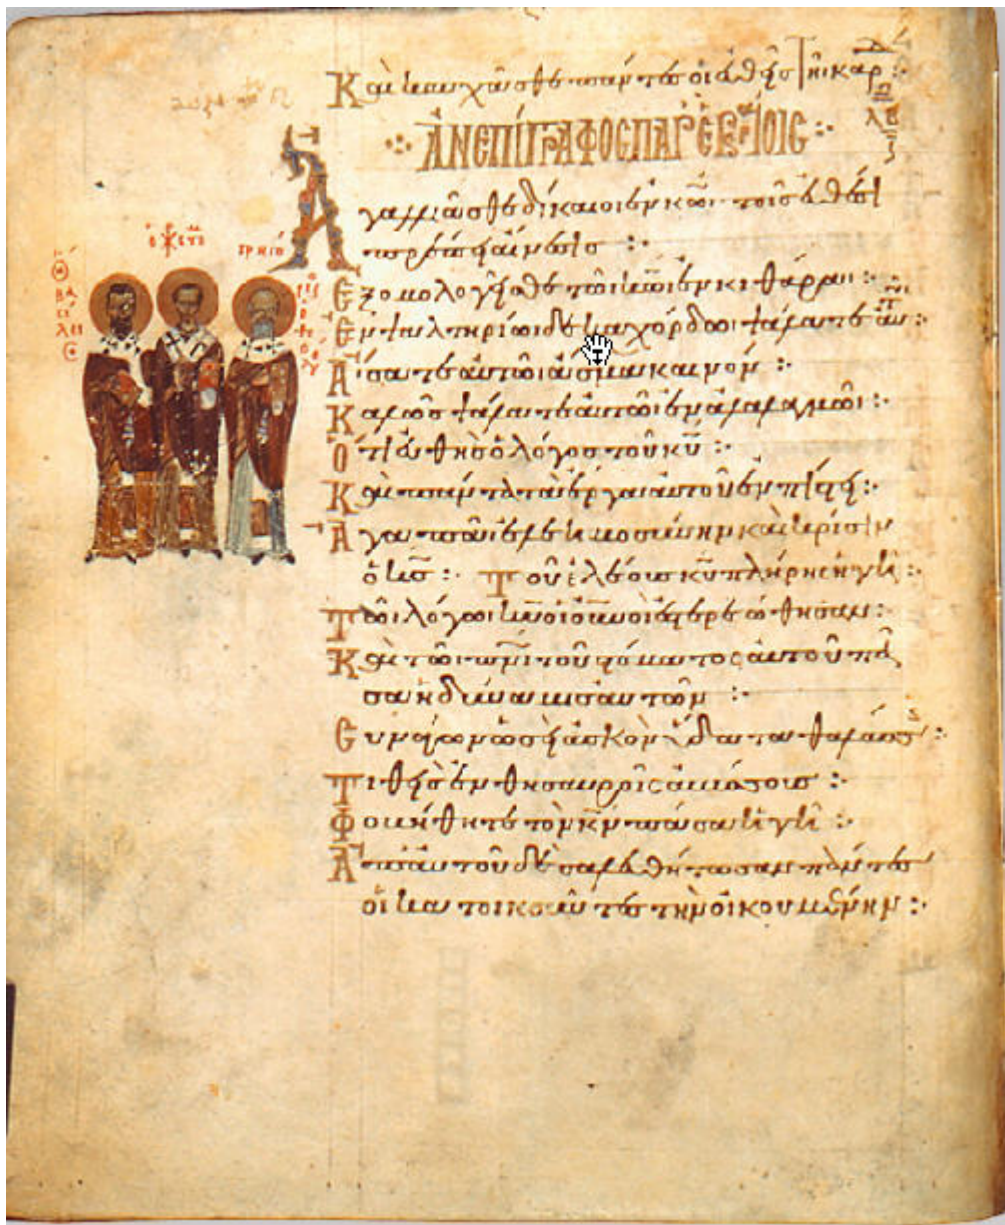 Καὶ καυχᾶσθε πάντες οἱ εὐθεῖς τῆι καρ
ΑΝΕΠΙΓΡΑΦΟΣ ΠΑΡ ΕΒΡΑΙΟΙΣ :·
Ἀγαλλιᾶσθε δίκαιοι ἐν κῶι τοῖς εὐθέσι
πρέπει αἴνεσις :·
Ἐξομολογεῖσθε τῶι κῶι ἐν κιθάραι :·
Ἐν ψαλτηρίωι δεκαχόρδωι ψάλατε αὐτῶι :·
Ἄισατε αὐτῶι ἆσμα καινόν :·
Καλῶς ψάλατε αὐτῶι ἐν ἀλαλαγμῶι :·
Ὅτι εὐθὴς ὁ λόγος τοῦ κῦ :·
Καὶ πάντα τὰ ἔργα αὐτοῦ ἐν πίστει :·
Ἀγαπᾶι ἐλεημοσύνην καὶ κρίσιν
ὁ κς :· Τοῦ ἐλέους κῦ πλήρης ἡ γῆ :·
Τῶι λόγωι κῦ οἱ οὐνοὶ ἐστερεώθησαν :·
Καὶ τῶι πνι τοῦ στόματος αὐτοῦ πᾶ
σα ἡ δύναμις αὐτῶν :·
Συνάγων ὡσεὶ ἀσκὸν ὕδατα θαλάσσης :·
Τιθεὶς ἐν θησαυροῖς ἀβύσσους :·
Φοβηθήτω τὸν κν πᾶσα ἡ γῆ :·
Ἀπ αὐτοῦ δὲ σαλευθήτωσαν πάντες
οἱ κατοικοῦντες τὴν οἰκουμένην :·